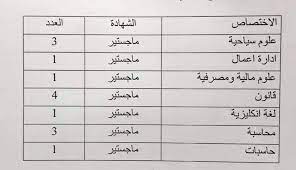 الاختصاص الشهادة العدد
علوم سياحية ماجستير 3
ادارة اعمال ماجستير 1
علوم مالية ومصرفية ماجستير 1
قانون ماجستير 4
لغة انكليزية ماجستير 1
محاسبة ماجستير 3
حاسبات ماجستير 1